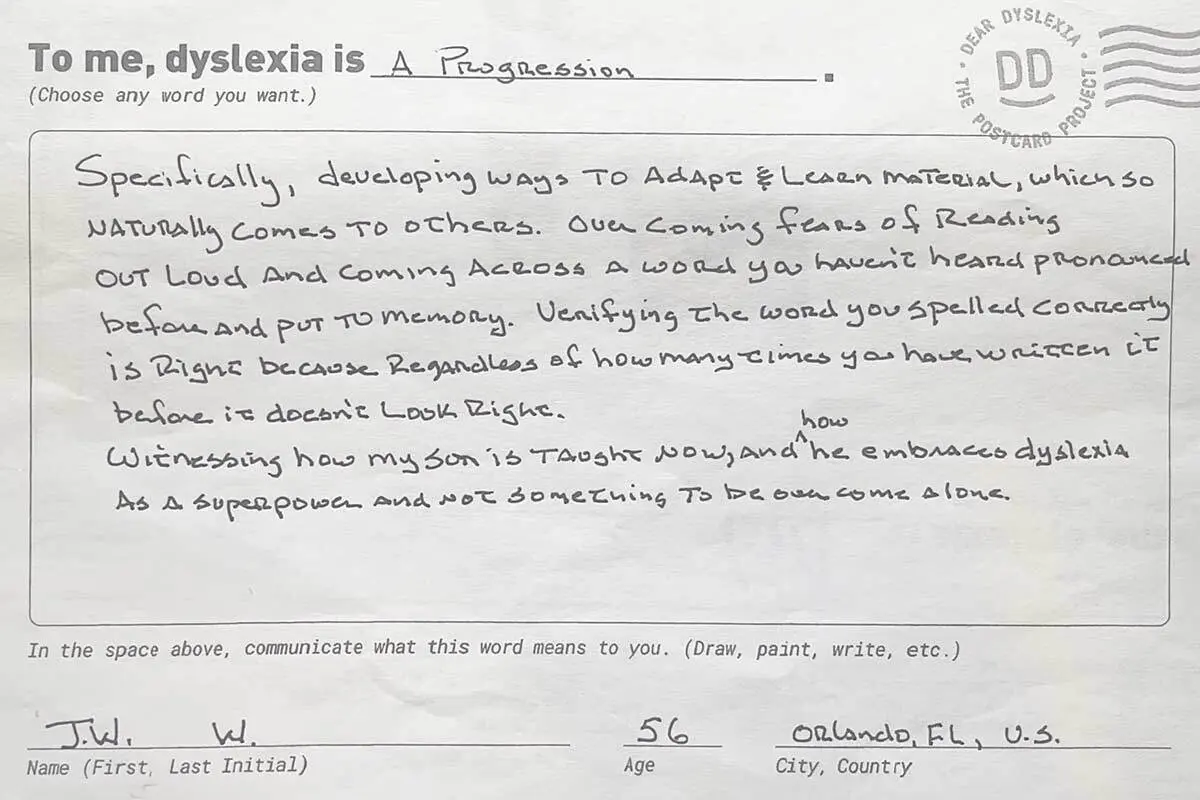 To me, dyslexia is A Progression.
(Choose any word you want.)
DEAR DYSLEXIA · THE POSTCARD PROJECT ·
DD
Specifically, developing ways To Adapt & Learn material, which so
NATURAlly comes TO OThers. Over coming fears of Reading
OUT Loud And Coming Across A word you haven't heard pronounced
before And put TO memory. Verifying the word you spelled correctly
is Right because Regardless of how many times you have written it
before it doesn't Look Right.
how
Witnessing how my son is TAught Now, and ^ he embraces dyslexia
As A superpower and not something To be over come alone.
In the space above, communicate what this word means to you. (Draw, paint, write, etc.)
J.W. W. 56 Orlando, FL, U.S.
Name (First, Last Initial) Age City, Country